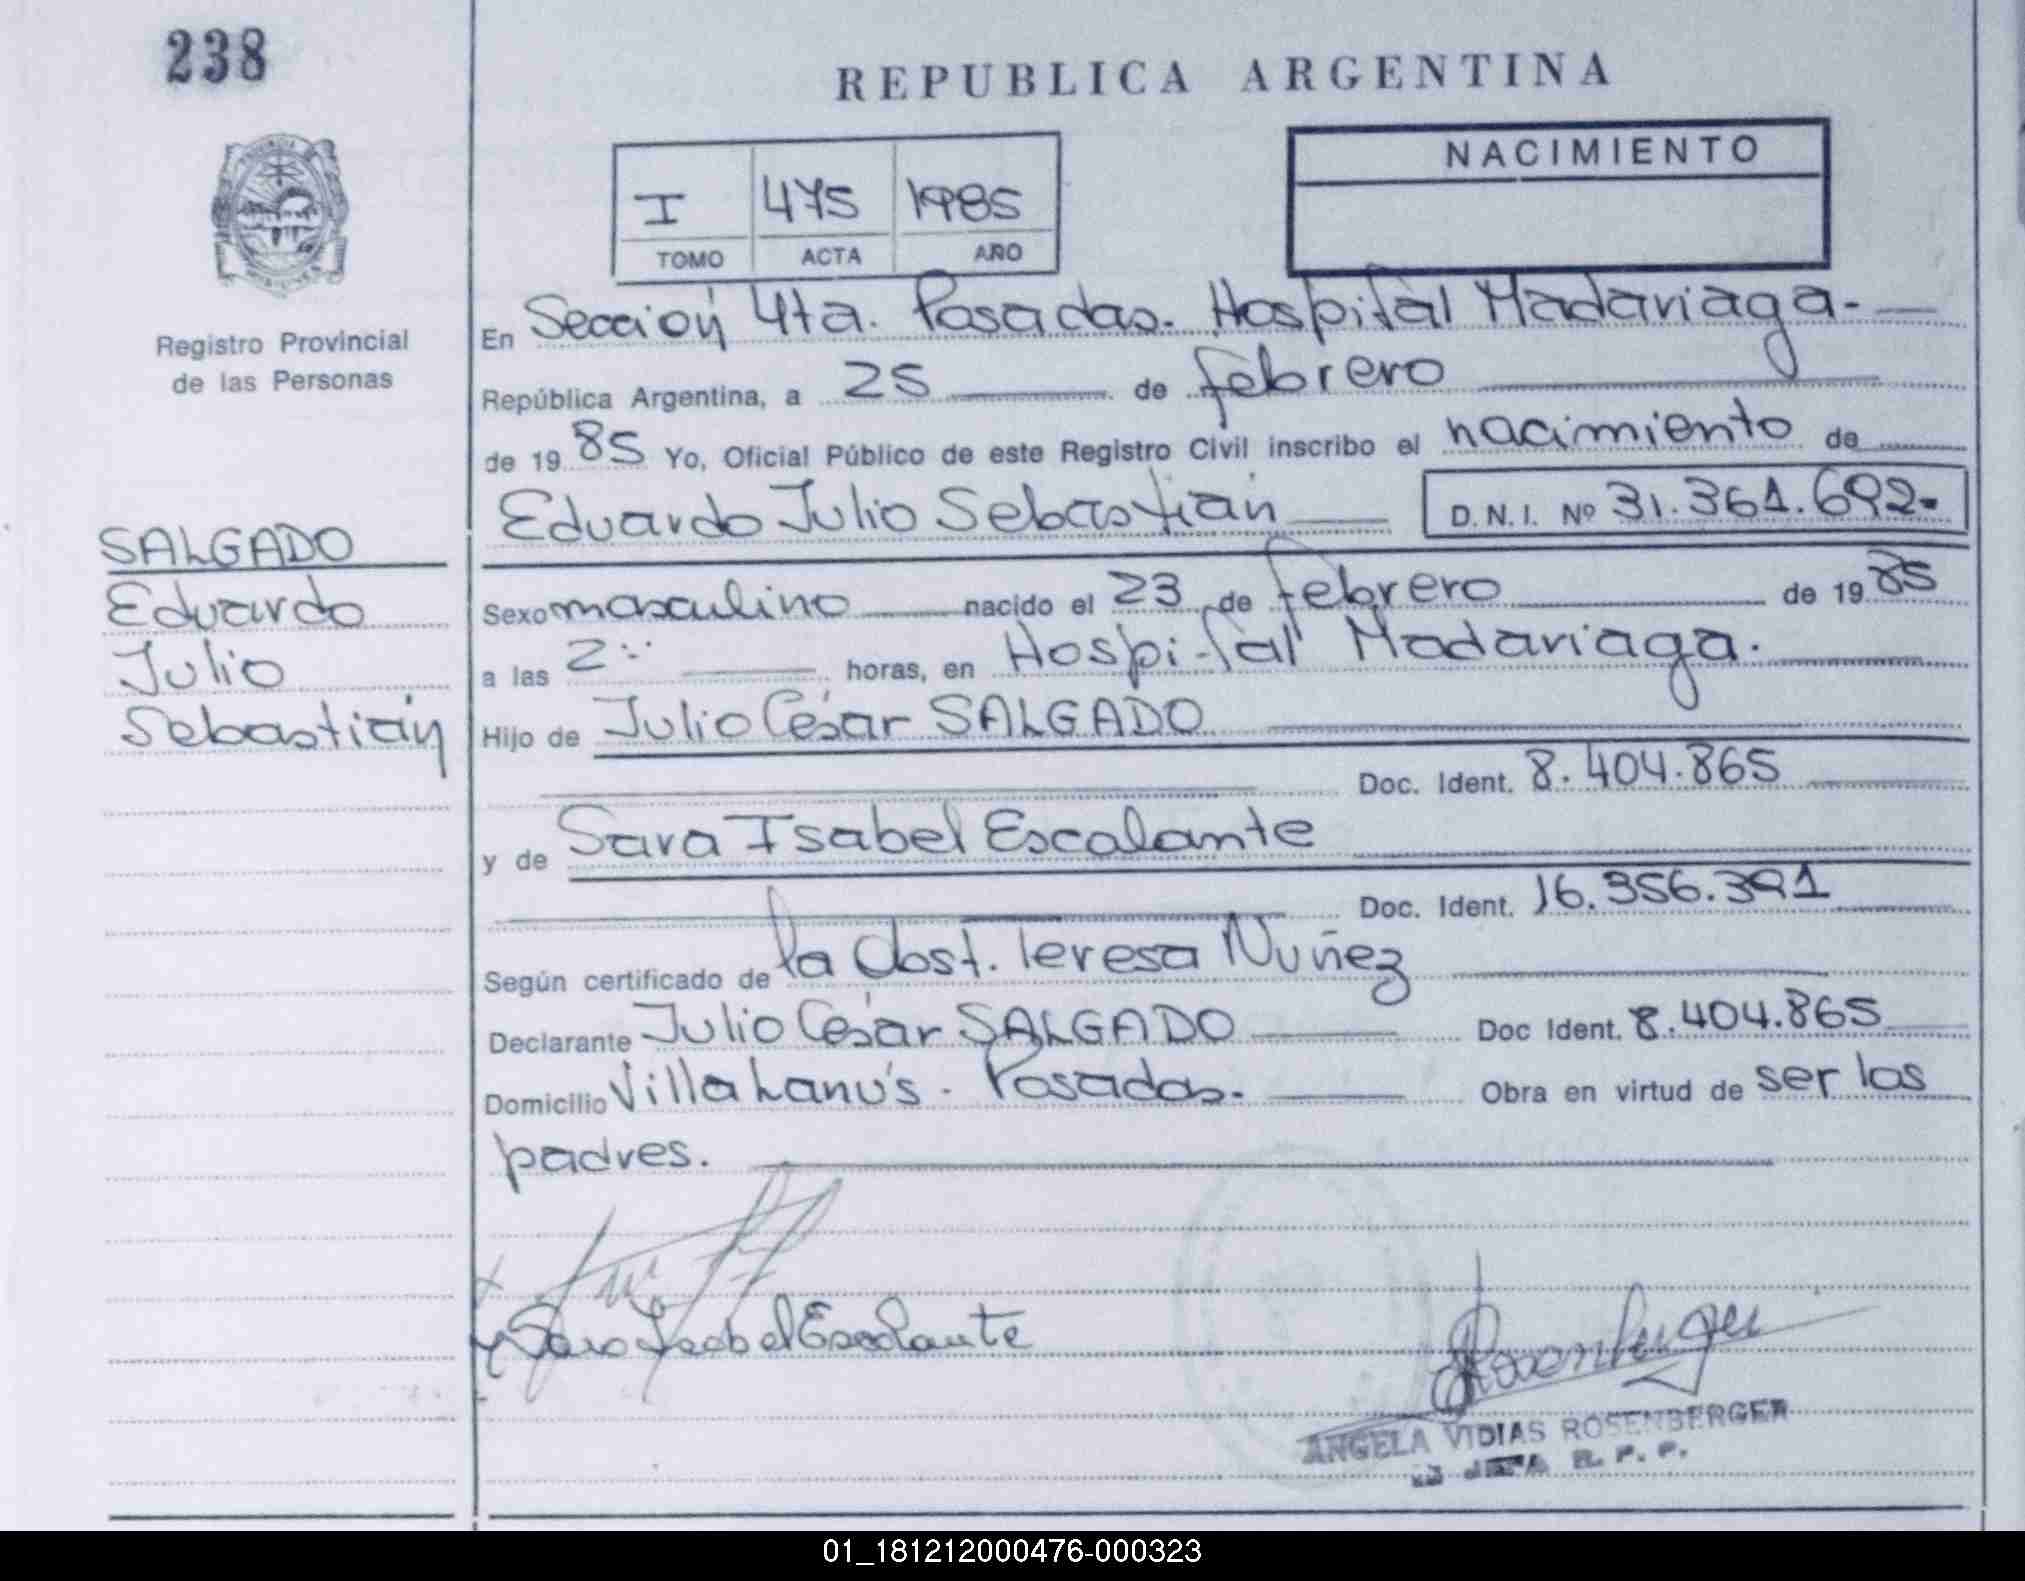 238
REPUBLICA ARGENTINA
NACIMIENTO
I 475 1985
TOMO ACTA AÑO
Registro Provincial
de las Personas
En Sección 4ta. Posadas. Hospital Madariaga.
República Argentina, a 25 de febrero
de 1985 Yo, Oficial Público de este Registro Civil inscribo el nacimiento de
Eduardo Julio Sebastián D.N.I. Nº 31.361.692.
SALGADO
Eduardo
Julio
Sebastián
Sexo masculino nacido el 23 de febrero de 1985
a las 2 horas, en Hospital Madariaga.
Hijo de Julio César SALGADO
Doc. Ident. 8.404.865
y de Sara Isabel Escalante
Doc. Ident. 16.356.391
Según certificado de la Obst. Teresa Nuñez
Declarante Julio César SALGADO Doc Ident. 8.404.865
Domicilio Villa Lanús. Posadas. Obra en virtud de ser los
padres.
Sara Isabel Escalante
Rosenberger
ANGELA VIDIAS ROSENBERGER
JEFA R. P. P.
01_181212000476-000323